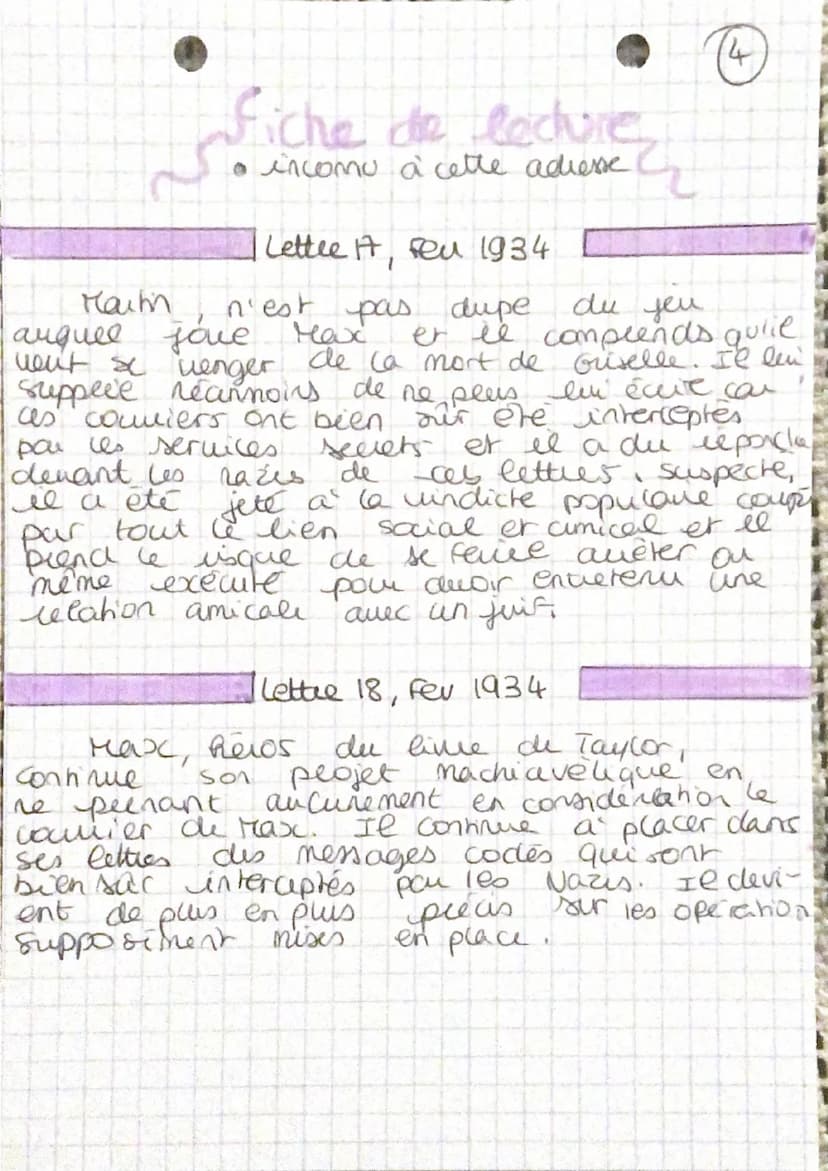 4
fiche de lecture
• inconnu à cette adresse
Lettre 17, Fev 1934
Martin, n'est pas dupe du jeu
auquel joue Max et il comprends qu'il
veut se venger de la mort de Griselle. Il lui
supplie néanmoins de ne plus lui écrire car
ces courriers ont bien sûr été interceptés
par les services secrets et il a du
devant les nazis de ces lettres. suspecté,
il a été jeté à la vindicte populaire coupé
par tout le lien social et amical et il
prend le risque de se faire arrêter ou
même exécuté pour avoir entretenu une
relation amicale avec un juif.
Lettre 18, Fev 1934
Max, héros du livre de Taylor,
continue son projet machiavélique en
ne prenant aucunement en considération le
courrier de Max. Il continue à placer dans
ses lettres des messages codés qui sont
bien sûr interceptés par les Nazis. Il devi-
ent de plus en plus précis sur les opération
supposément mises en place.